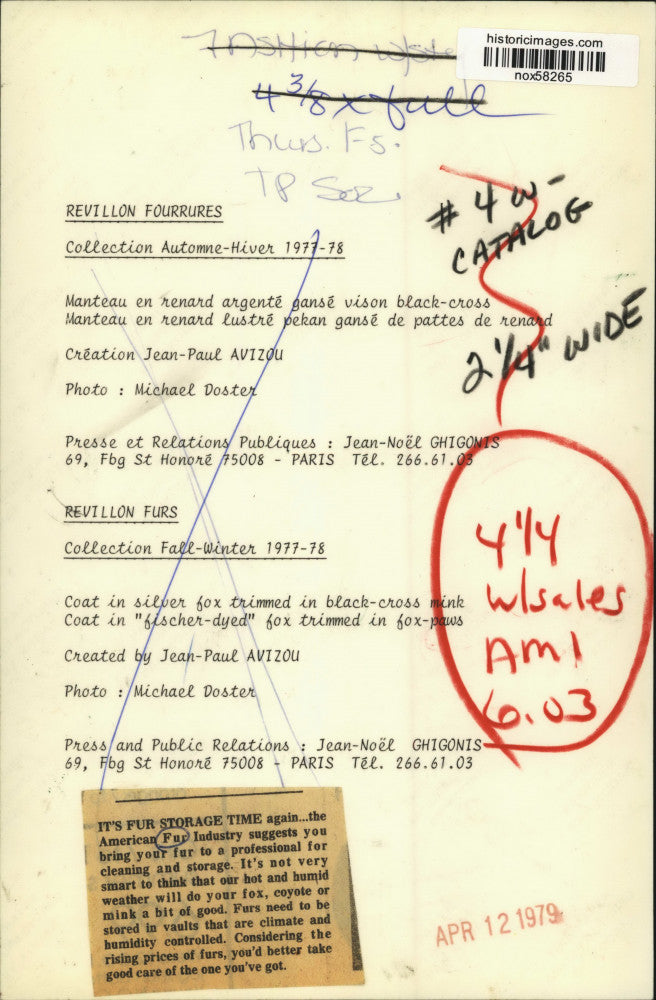 historicimages.com
nox58265
Fashion w/
4 3/8 x full
Thurs. Fs.
# 4 W-
CATALOG
2 1/4" WIDE
REVILLON FOURRURES
Collection Automne-Hiver 1977-78
Manteau en renard argenté gansé vison black-cross
Manteau en renard lustré pekan gansé de pattes de renard
Création Jean-Paul AVIZOU
Photo : Michael Doster
Presse et Relations Publiques : Jean-Noël GHIGONIS
69, Fbg St Honoré 75008 - PARIS Tél. 266.61.03
REVILLON FURS
Collection Fall-Winter 1977-78
Coat in silver fox trimmed in black-cross mink
Coat in "fischer-dyed" fox trimmed in fox-paws
Created by Jean-Paul AVIZOU
Photo : Michael Doster
Press and Public Relations : Jean-Noël GHIGONIS
69, Fbg St Honoré 75008 - PARIS Tél. 266.61.03
4 1/4
w/sales
AM1
6.03
IT'S FUR STORAGE TIME again...the
American Fur Industry suggests you
bring your fur to a professional for
cleaning and storage. It's not very
smart to think that our hot and humid
weather will do your fox, coyote or
mink a bit of good. Furs need to be
stored in vaults that are climate and
humidity controlled. Considering the
rising prices of furs, you'd better take
good care of the one you've got.
APR 12 1979